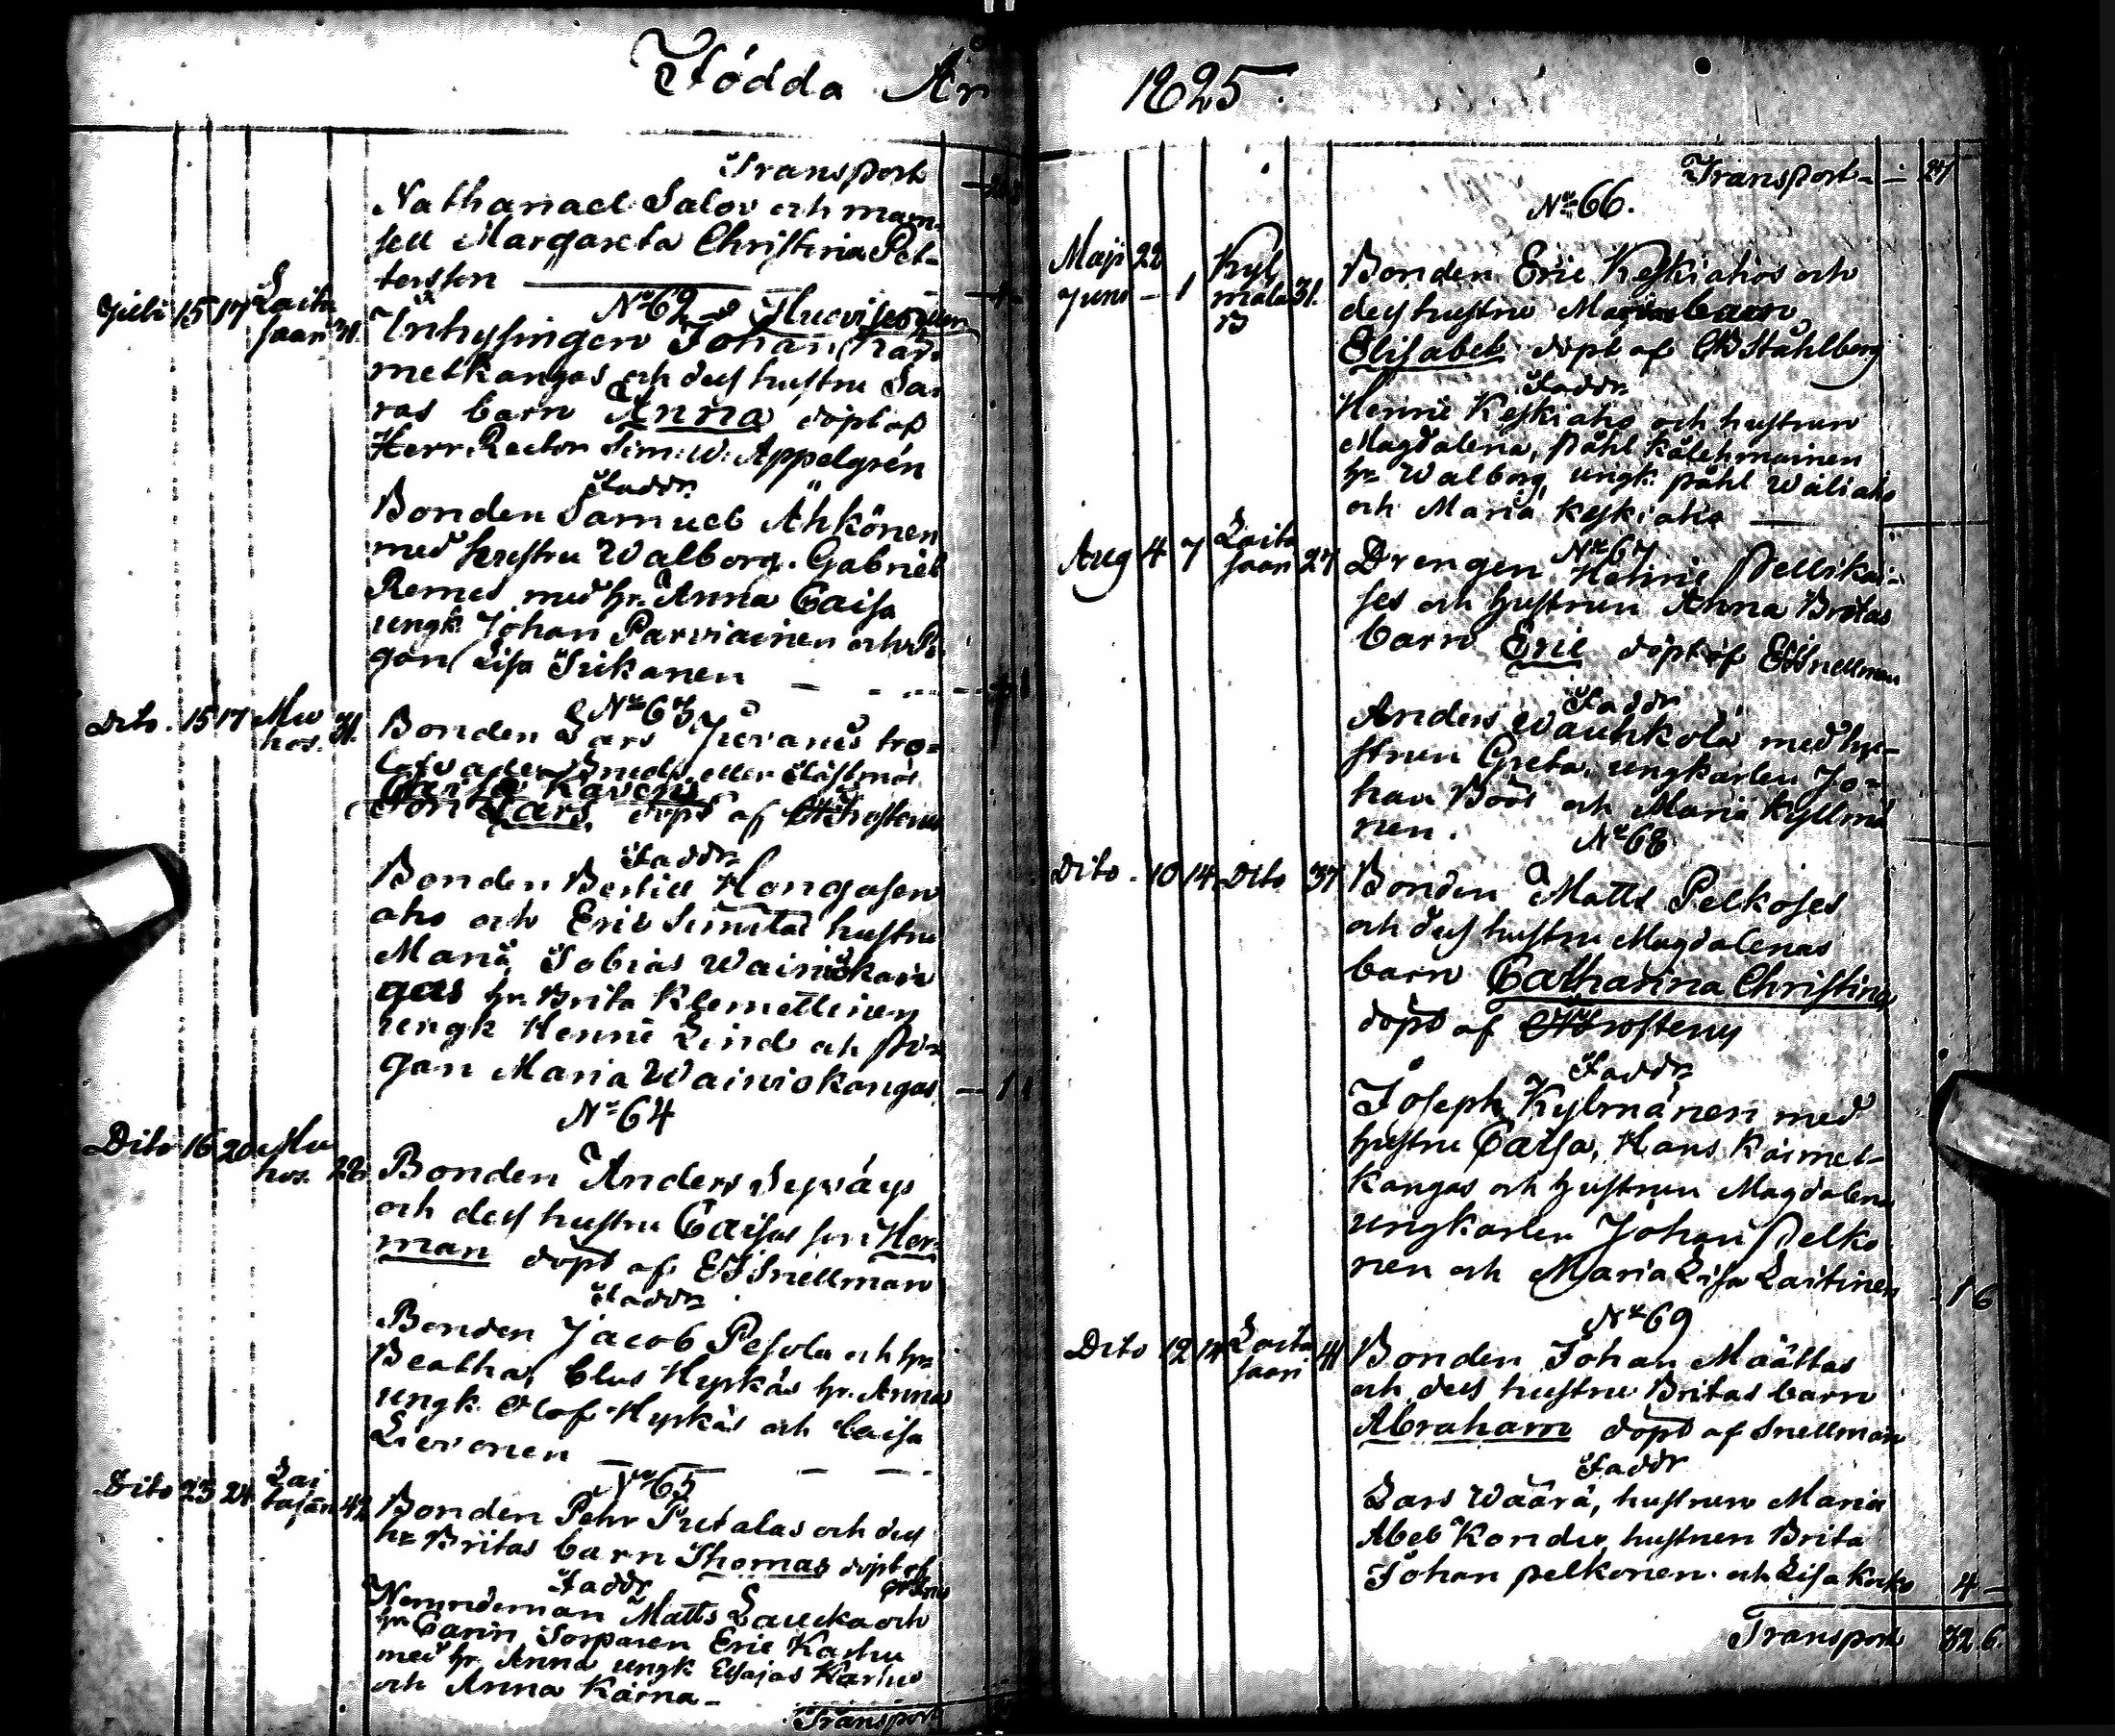 Födda År
Transport
Nathanael Salov och mam
sell Margareta Christina Pet-
tersson
No 62
Julii 15 17 Laita
saari 31. Inhysingen Johan
metkangas och dess hustru Sa-
ras barn Anna döpt af
Herr Rector Sim: W: Appelgrén
Faddr
Bonden Samuel Ahkönen
med hustru Walborg. Gabriel
Remes med hr. Anna Caisa
ungk. Johan Parviainen och Pi
gan Lisa Tukanen
No 63
Dito. 15 17 Mu
hos. 31. Bonden Lars Juvanis tro-
Son Lars döpt af
Faddr
Bonden Bertill Hongasen
aho och Eric Simila hustru
Maria, Tobias Wainiokan
gas hr. Brita Klemettinen
ungk Henric Lind och Pi-
gan Maria Wainiokangas 1
No 64
Dito 16 20 Mu
hos. 22 Bonden Anders Sywäys
och dess hustru Caisas son Her
man döpt af EJ Snellman
Faddr
Bonden Jacob Pesola och hr
Beatha, Clas Hyrkäs hr. Anna
ungk. Olof Hyrkäs och Caisa
Lievonen
No 65
Dito 23 24 Lai
tasari 42 Bonden Pehr Putalas och dess
hr Britas barn Thomas döpt af
Faddr
Nemndeman Matts Laucka och
hr Carin Sorparen Eric Karhu
med hr. Anna ungk Esajas Karhu
och Anna Kärna -
Transport
1825.
Transport - - 27
No 66.
Maji 22
Juni - 1 Kyl
mälä 31. Bonden Eric Keskiahos och
dess hustru Marias barn
Elisabet döpt af Ståhlberg
Faddr
Henric Keskiaho och hustrun
Magdalena, Påhl Kälehmainen
hr Walborg, ungk. påhl Wäliaho
och Maria Keskiaho
No 67
Aug 4 7 Laita
saari 27 Drengen Henric Pellikai-
ses och hustrun Anna Britas
barn Eric döpt af EJ Snellman
Faddr
Anders Wauhkola med hu-
strun Greta, ungkarlen Jo-
han Böös och Maria Kyllmä
nen.
No 68
Dito. 10 14 Dito 37 Bonden Matts Pelkoses
och dess hustru Magdalenas
barn Catharina Christina
döpt af Frosterus
Faddr
Joseph Kylmänen med
hustru Caisa, Hans Kaimel-
kangas och hustrun Magdalena
ungkarlen Johan Pelko
nen och Maria Lisa Laitinen - 1 6
No 69
Dito 12 14 Laita
saari 41 Bonden Johan Määttas
och dess hustru Britas barn
Abraham döpt af Snellman
Faddr
Lars Waara, hustrun Maria
Abel Kondio, hustrun Brita
Johan pelkonen och Lisa Kok 4 -
Transport 32 6.